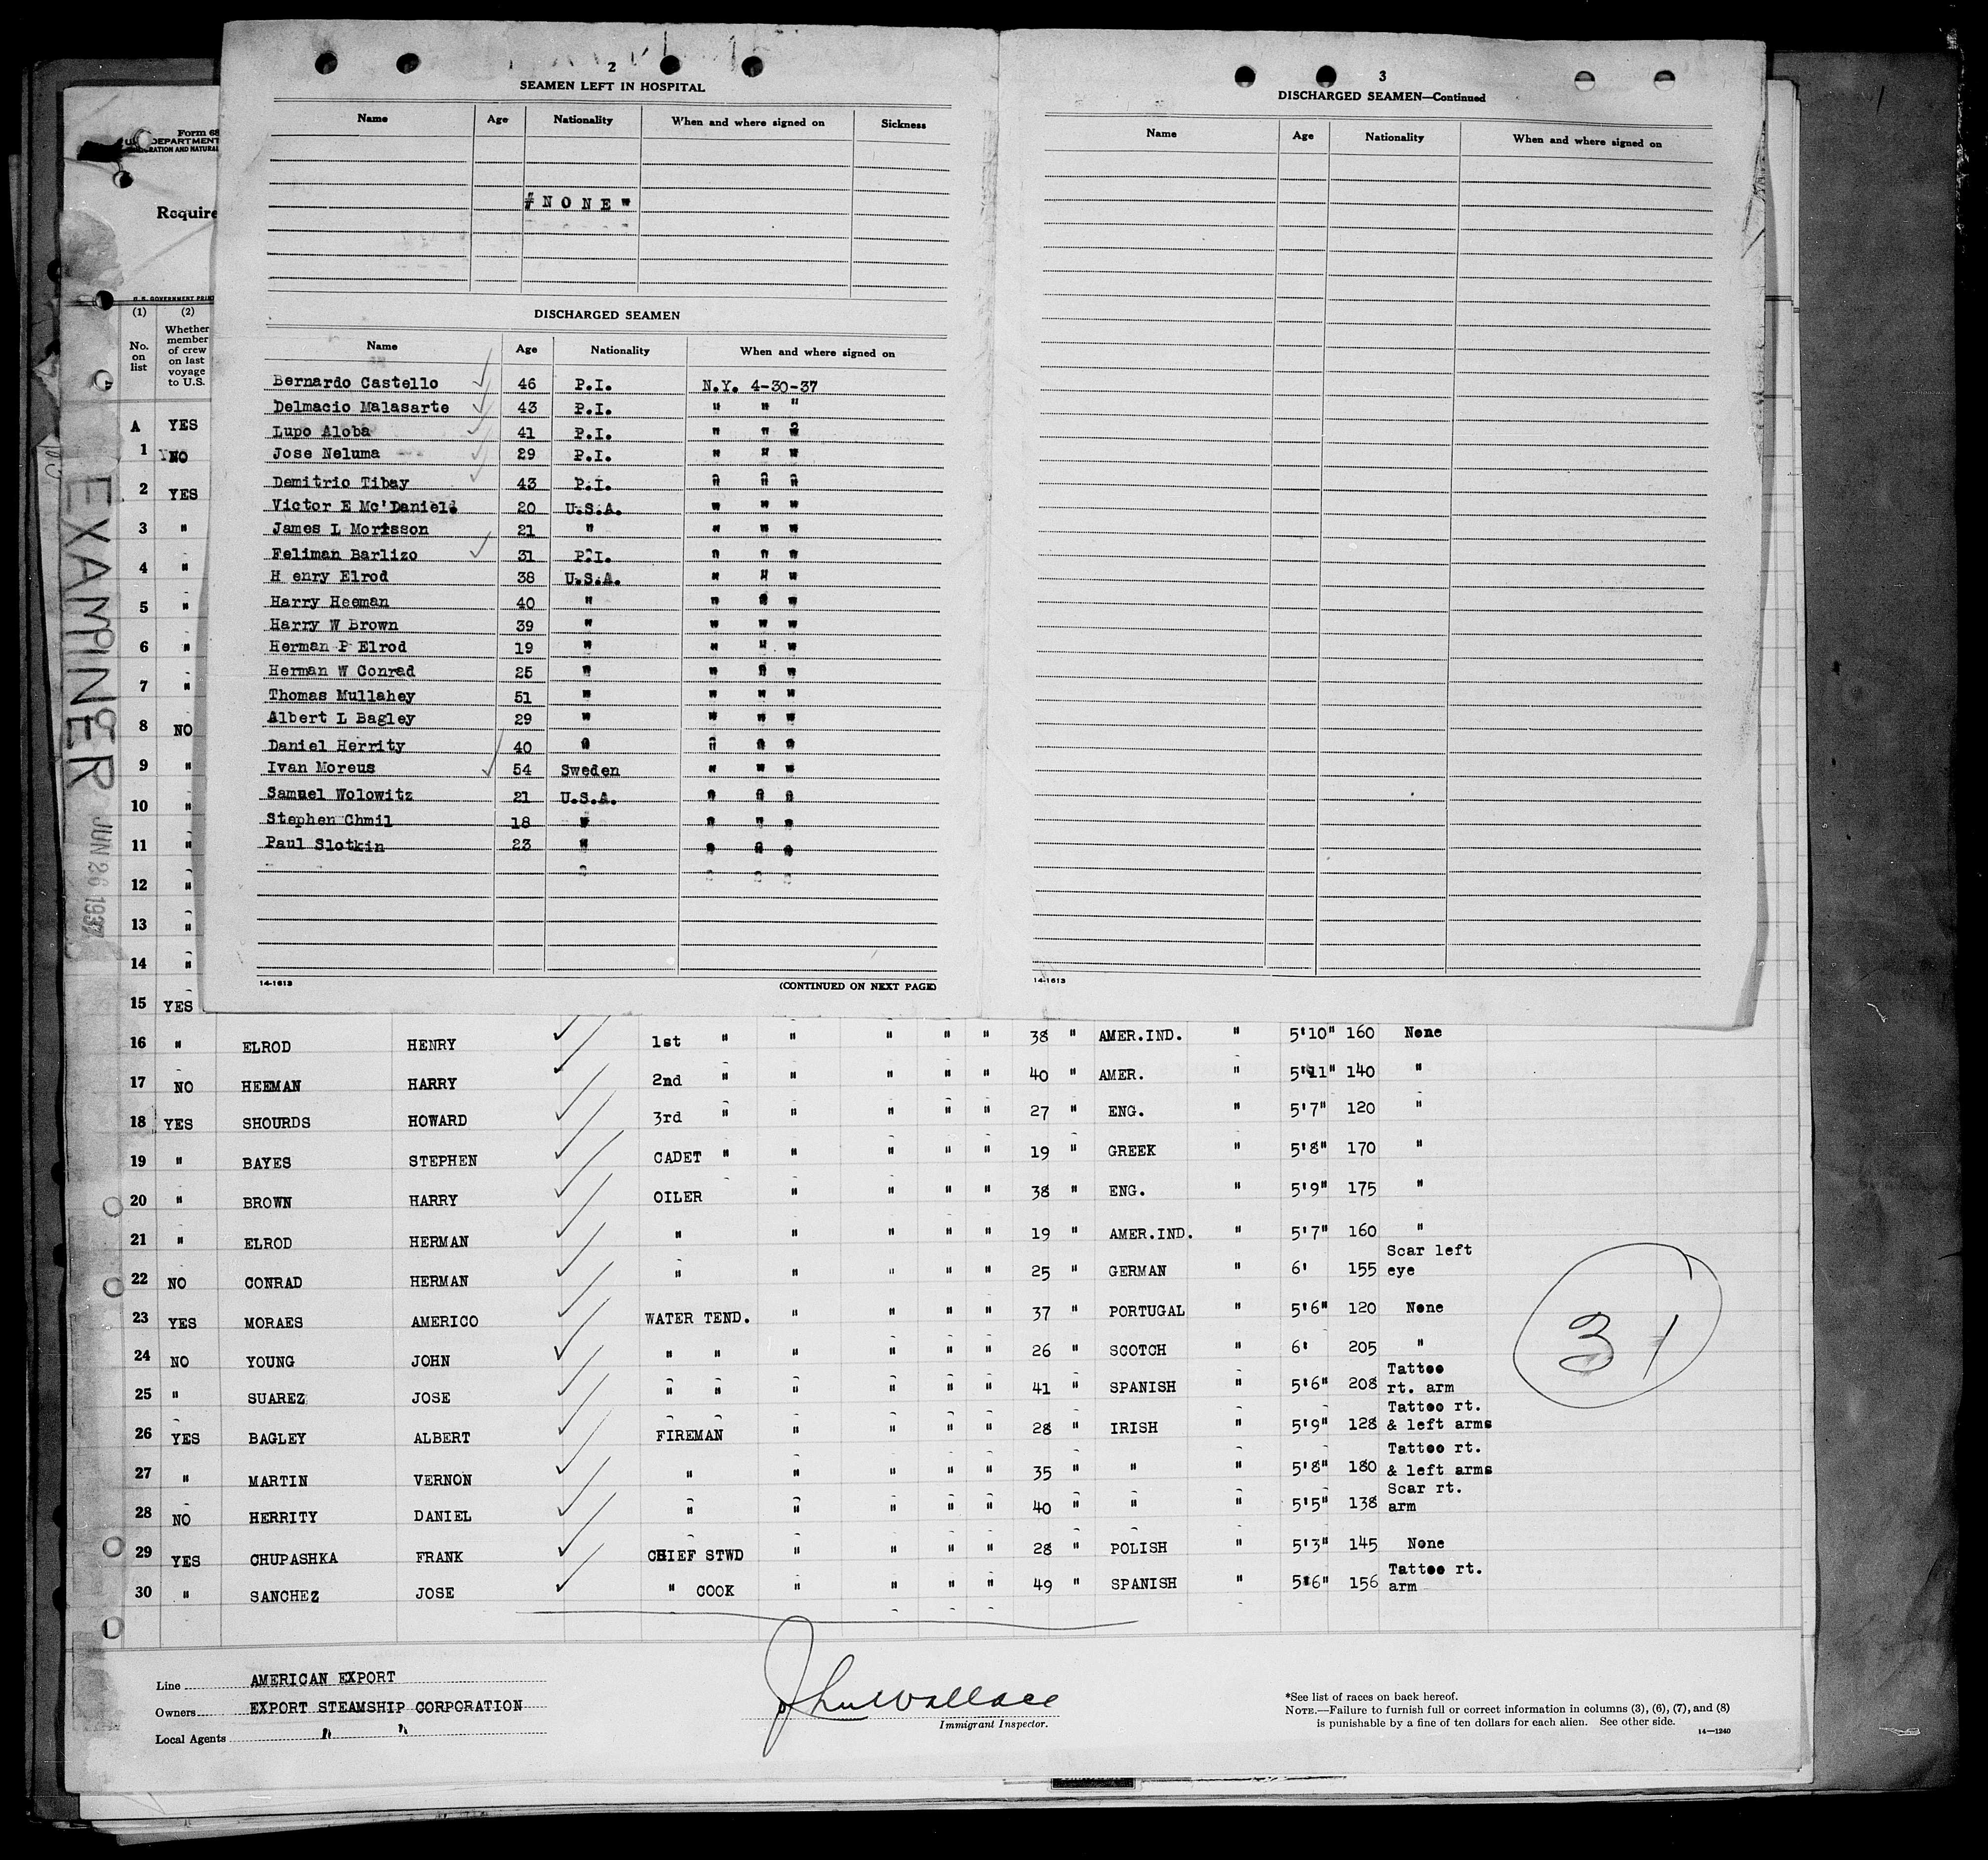 2
SEAMEN LEFT IN HOSPITAL
Name Age Nationality When and where signed on Sickness
#NONE"
DISCHARGED SEAMEN
Name Age Nationality When and where signed on
Bernardo Castello 46 P.I. N.Y. 4-30-37
Delmacio Malasarte 43 P.I. " " "
Lupo Aloba 41 P.I. " " "
Jose Neluma 29 P.I. " " "
Demitrio Tibay 43 P.I. " " "
Victor E Mc'Daniel 20 U.S.A. " " "
James L Morisson 21 " " " "
Feliman Barlizo 31 P.I. " " "
H enry Elrod 38 U.S.A. " " "
Harry Heeman 40 " " " "
Harry W Brown 39 " " " "
Herman P Elrod 19 " " " "
Herman W Conrad 25 " " " "
Thomas Mullahey 51 " " " "
Albert L Bagley 29 " " " "
Daniel Herrity 40 " " " "
Ivan Moreus 54 Sweden " " "
Samuel Wolowitz 21 U.S.A. " " "
Stephen Chmil 18 " " " "
Paul Slotkin 23 " " " "
14-1613
(CONTINUED ON NEXT PAGE)
3
DISCHARGED SEAMEN—Continued
Name Age Nationality When and where signed on
14-1613
Form 68
DEPARTMENT
Require
(1) (2)
No. on list
Whether member of crew on last voyage to U.S.
EXAMINER
JUN 26 1937
A YES
1 NO
2 YES
3 "
4 "
5 "
6 "
7 "
8 NO
9 "
10 "
11 "
12 "
13 "
14 "
15 YES
16 " ELROD HENRY 1st " " " " " 38 " AMER.IND. " 5'10" 160 None
17 NO HEEMAN HARRY 2nd " " " " " 40 " AMER. " 5'11" 140 "
18 YES SHOURDS HOWARD 3rd " " " " " 27 " ENG. " 5'7" 120 "
19 " BAYES STEPHEN CADET " " " " " 19 " GREEK " 5'8" 170 "
20 " BROWN HARRY OILER " " " " 38 " ENG. " 5'9" 175 "
21 " ELROD HERMAN " " " " " 19 " AMER.IND. " 5'7" 160 "
22 NO CONRAD HERMAN " " " " " 25 " GERMAN " 6' 155 Scar left eye
23 YES MORAES AMERICO WATER TEND. " " " " 37 " PORTUGAL " 5'6" 120 None
24 NO YOUNG JOHN " " " " " " 26 " SCOTCH " 6' 205 "
25 " SUAREZ JOSE " " " " " " 41 " SPANISH " 5'6" 208 Tattoo rt. arm
26 YES BAGLEY ALBERT FIREMAN " " " " 28 " IRISH " 5'9" 128 Tattoo rt. & left arms
27 " MARTIN VERNON " " " " " 35 " " " 5'8" 180 Tattoo rt. & left arms
28 NO HERRITY DANIEL " " " " " 40 " " " 5'5" 138 Scar rt. arm
29 YES CHUPASHKA FRANK CHIEF STWD " " " " 28 " POLISH " 5'3" 145 None
30 " SANCHEZ JOSE " COOK " " " " 49 " SPANISH " 5'6" 156 Tattoo rt. arm
31
Line AMERICAN EXPORT
Owners EXPORT STEAMSHIP CORPORATION
Local Agents " "
John Wallace
Immigrant Inspector.
*See list of races on back hereof.
NOTE.—Failure to furnish full or correct information in columns (3), (6), (7), and (8)
is punishable by a fine of ten dollars for each alien. See other side.
14—1240